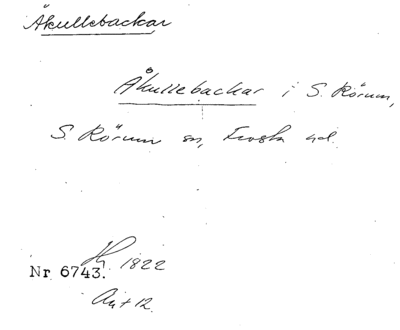 Åkullebackar
Åkullebackar i S. Rörum,
S. Rörum sn, Frosta hd.
1822
Nr 6743.
12